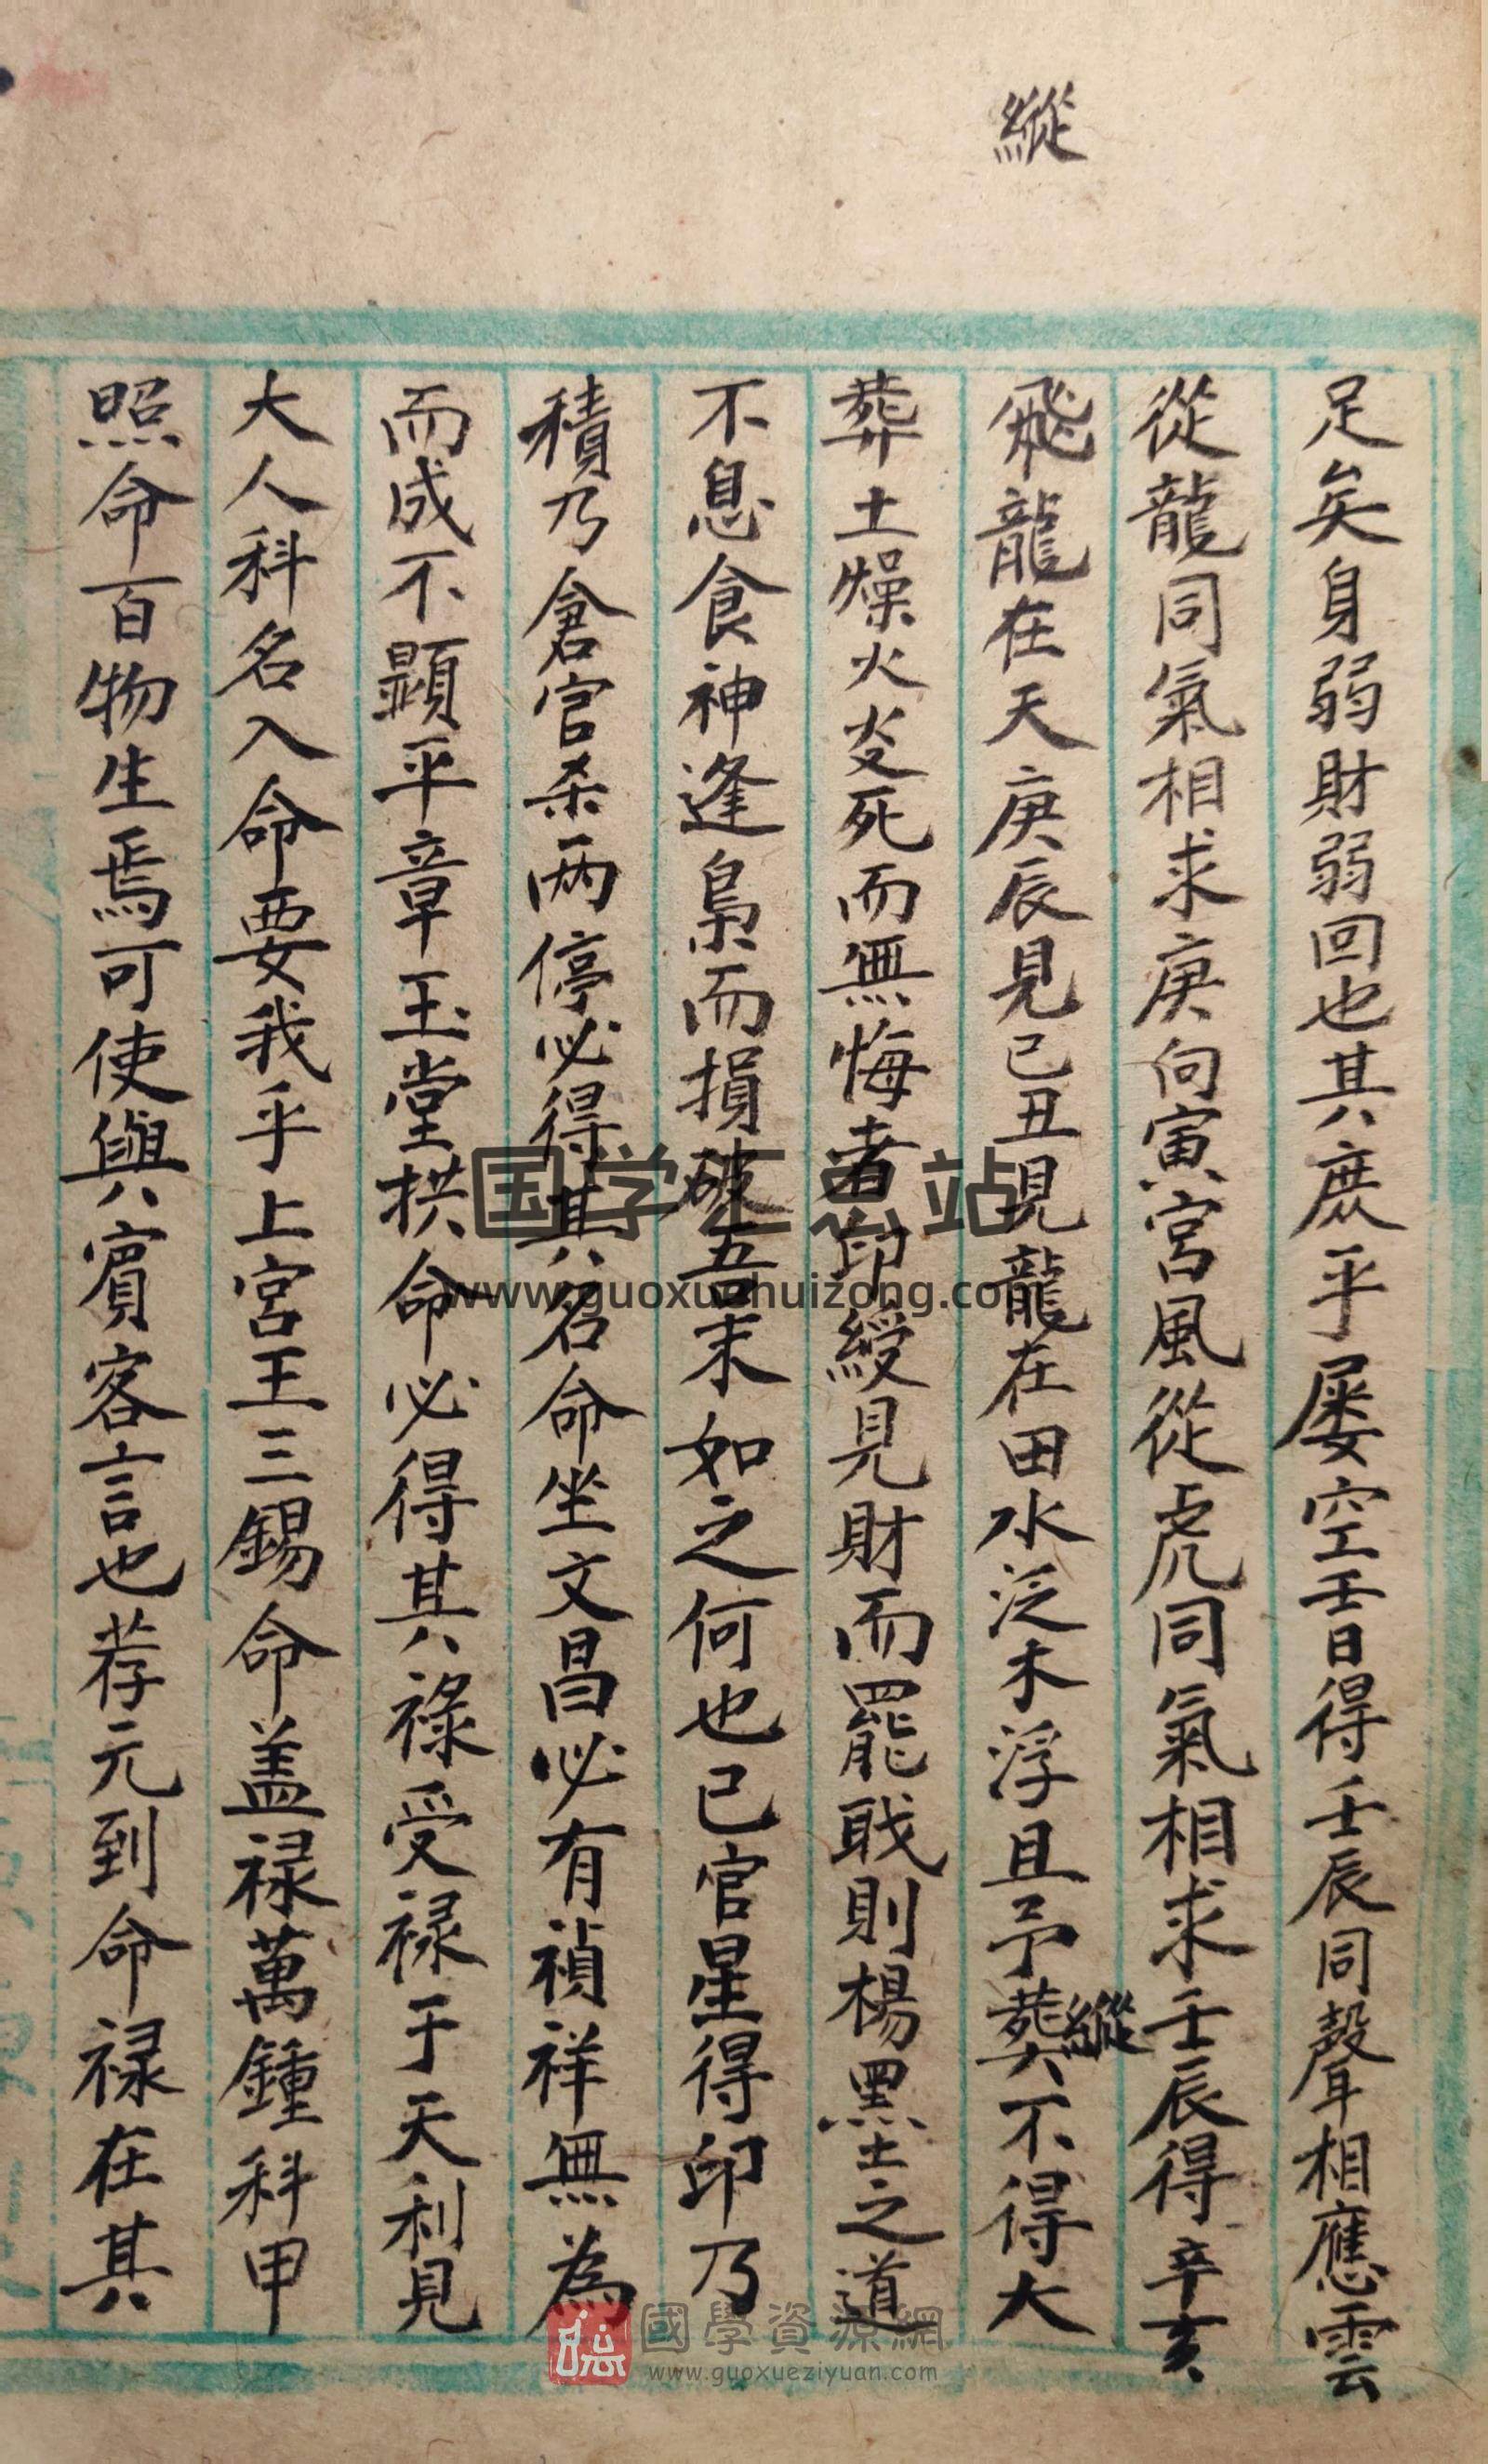 縱
足矣身弱財弱回也其庶乎屡空壬日得壬辰同聲相應雲
從龍同氣相求庚向寅宮風從虎同氣相求壬辰得辛亥
飛龍在天庚辰見己丑見龍在田水泛木浮且予縱葬不得大
葬土燥火炎死而無悔者印綬見財而罷戝則楊墨之道
不息食神逢梟而損破吾末如之何也已官星得印乃
積乃倉官杀两停必得其名命坐文昌必有禎祥無為
而成不顕平章玉堂拱命必得其祿受禄于天利見
大人科名入命要我乎上宮王三錫命盖禄萬鍾科甲
照命百物生焉可使與賓客言也荐元到命禄在其
国学汇总站
www.guoxuehuizong.com
國學資源網
www.guoxueziyuan.com